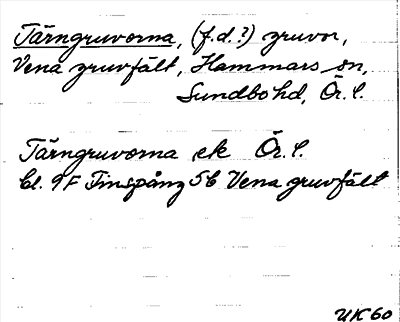 Tärngruvorna, (f.d.?) gruvor,
Vena gruvfält, Hammars sn,
Sundbo hd, Ör. l.
Tärngruvorna ek Ör. l.
bl. 9F Finspång 5c Vena gruvfält
UK 60